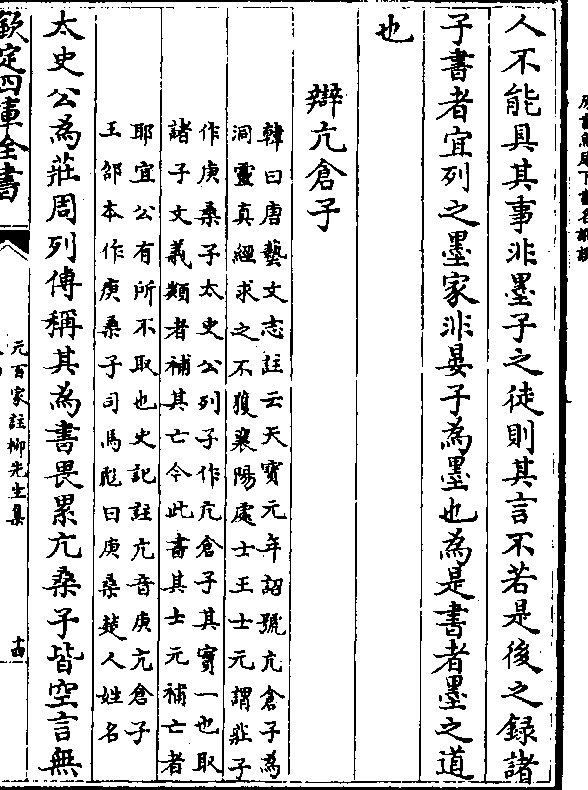 人不能具其事非墨子之徒則其言不若是後之録諸
子書者宜列之墨家非晏子為墨也為是書者墨之道
也
辯亢倉子
韓曰唐藝文志註云天寶元年詔號亢倉子為
洞靈真經求之不獲襄陽處士王士元謂莊子
作庚桑子太史公列子作亢倉子其實一也取
諸子文義類者補其亡今此書其士元補亡者
耶宜公有所不取也史記註亢音庚亢倉子
王邵本作庚桑子司馬彪曰庚桑楚人姓名
太史公為莊周列傳稱其為書畏累亢桑子皆空言無
欽定四庫全書
五百家註柳先生集